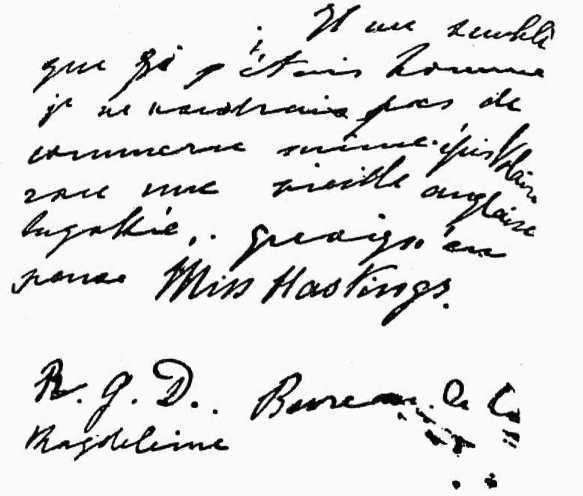 Il me semble
que si j'étais homme
je ne voudrais pas de
commerce même épistolaire
avec une vieille anglaise
quoiqu'en
pense Miss Hastings.
R. G. D. Bureau de la
Magdeleine